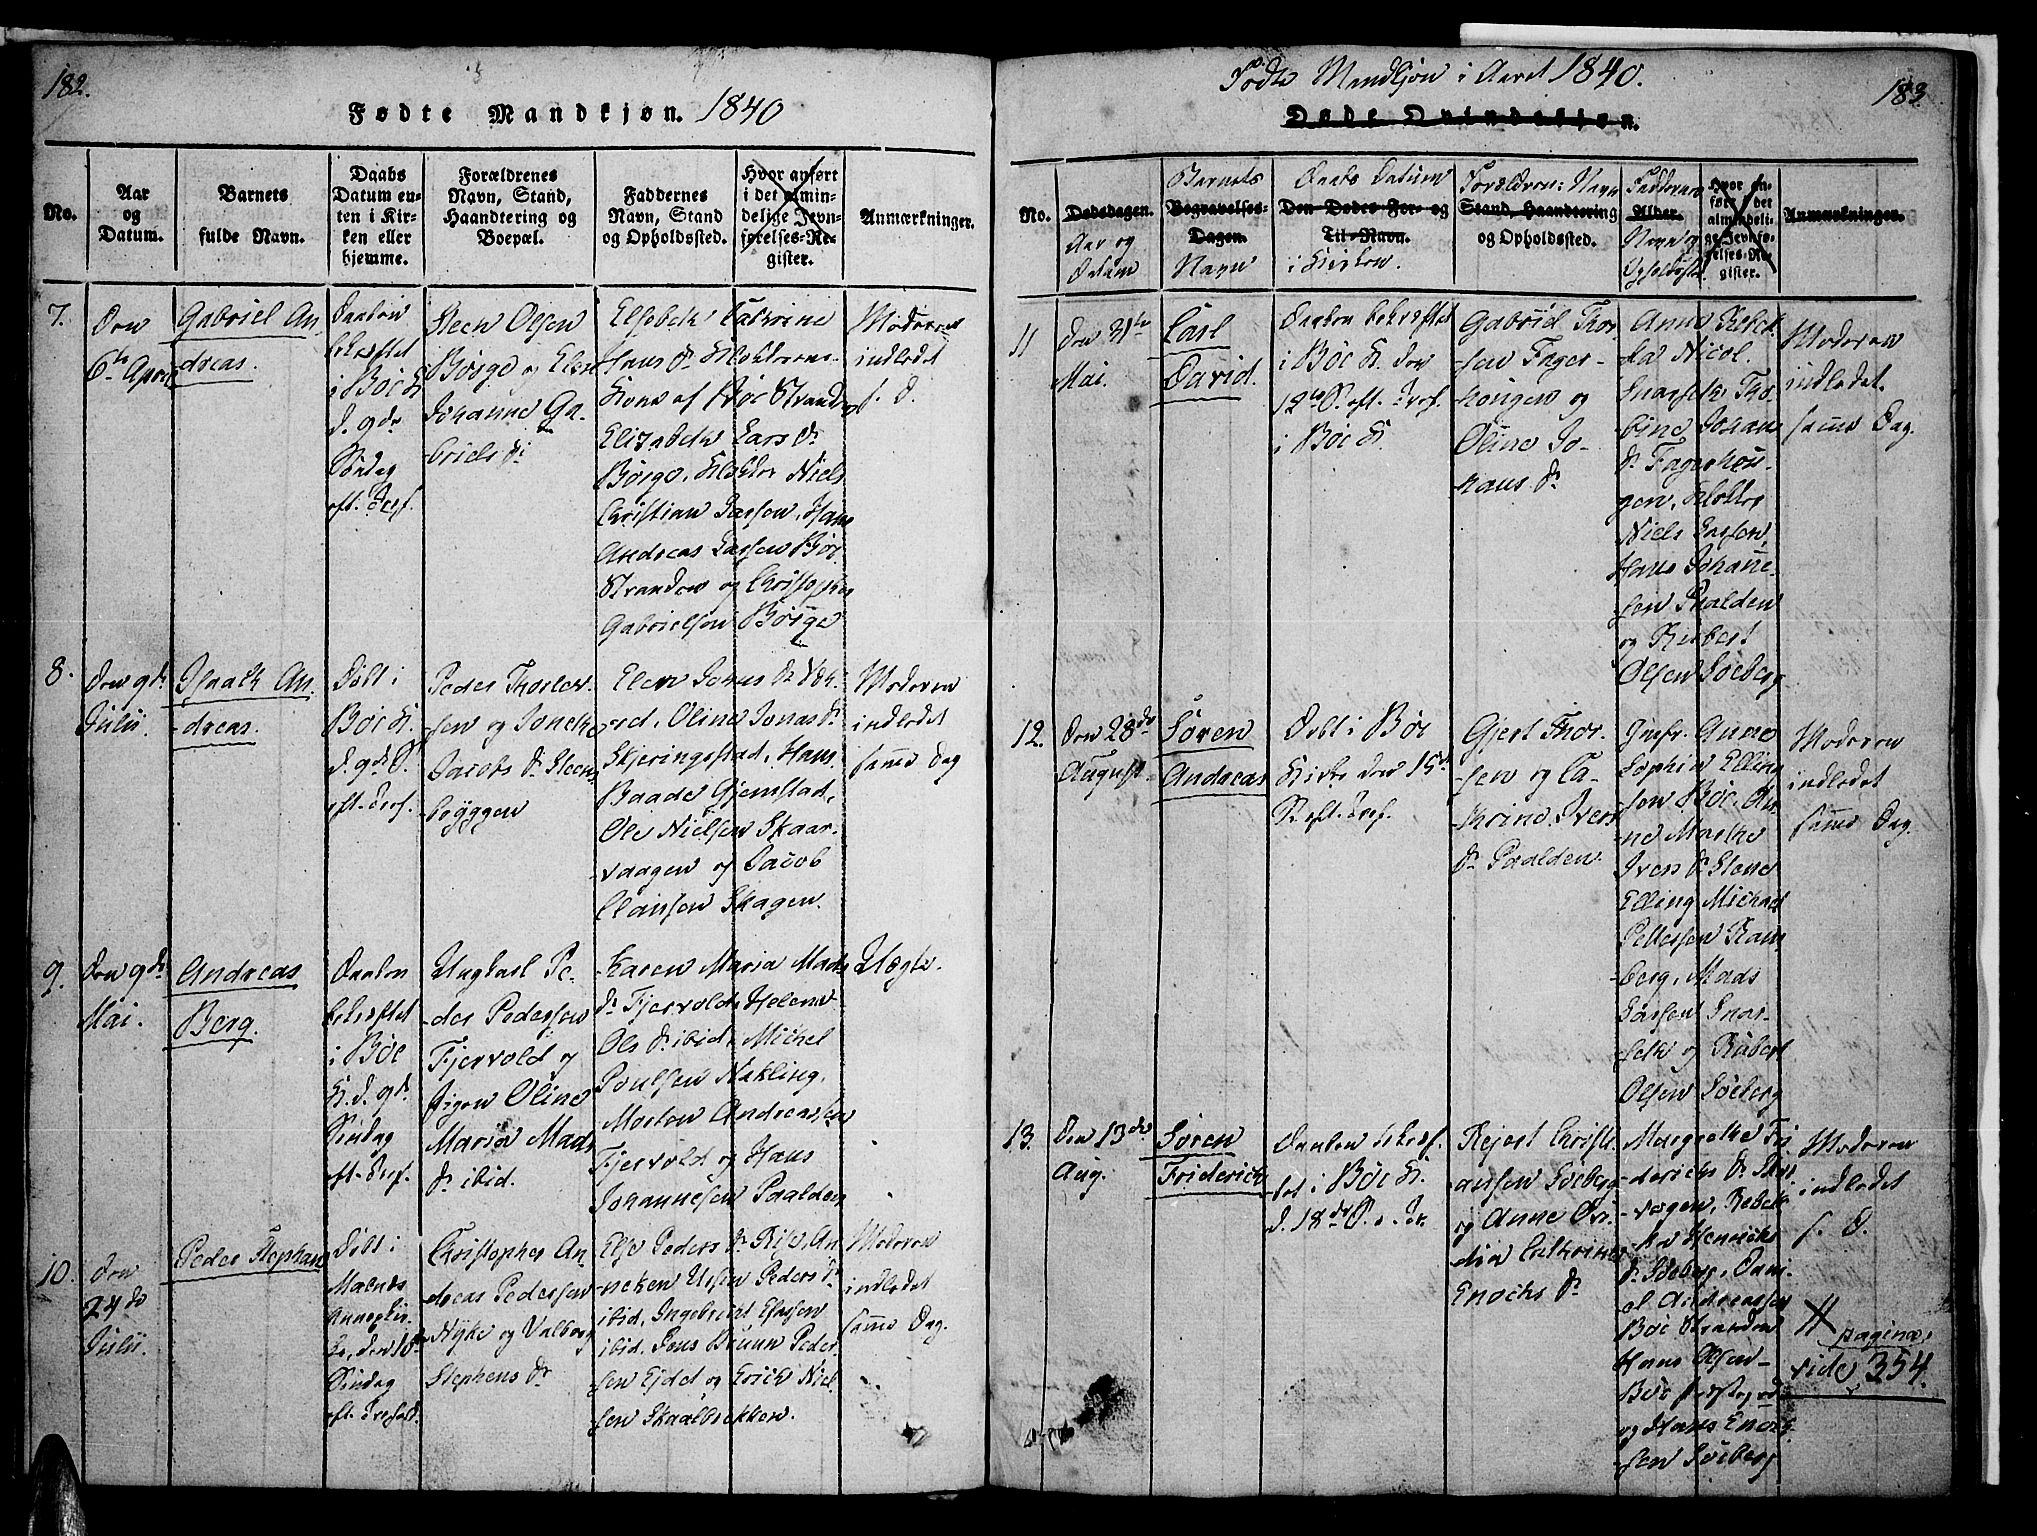 182.
Fødte Mandkjøn. 1840
No.
Aar
og
Datum.
Barnets
fulde Navn.
Daabs
Datum en-
ten i Kir-
ken eller
hjemme.
Forældrenes
Navn, Stand,
Haandtering og
Boepæl.
Faddernes
Navn, Stand
og Opholdssted.
Hvor anført
i det almin-
delige Jevn-
førelses-Re-
gister.
Anmærkninger.
7.
Den
6te April
Gabriel An-
dreas.
Daaben
bekræftet
i Böe K.
d. 9de
Söndag
eft. Tref.
Steen Olsen
Börge og Elen
Johanne Ga-
briels Dr
Elsebeth Cathrine
Hans Dr Klokkerens
Kone af Böe Stranden
Elizabeth Lars Dr
Börge, Klokker Niels
Christian Larsen, Hans
Andreas Larsen Böe
Stranden og Christopher
Gabrielsen Börge
Moderen
indledet
s. D.
8.
Den 9de
Julii.
Isaach An-
dreas.
Döbt i
Böe K.
d. 9de S.
eft. Tref.
Peder Thorler-
sen og
Jacobs Dr Steens
byggen
Elen Jonas Dr
Oline Jonas Dr
Skjeringstad, Hans
Baade Gjemstad,
Ole Nielsen Skaar-
vaagen og Jacob
Clausen Skagen.
Moderen
indledet
samme Dag
9.
Den 9de
Mai.
Andreas
Berg.
Daaben
bekræftet
i Böe
K. d. 9de
Söndag
eft. Tref.
Ungkarl Pe-
der Pedersen
Fjervold og
Pigen Oline
Maria Mads
Dr ibid.
Karen Maria Mads
Dr Fjervold, Helena
Ols Dr ibid, Michel
Poulsen Nækling,
Morten Andreassen
Fjervold og Hans
Johannesen Paalden
Uægte.
10.
Den
24de
Julii.
Peder Stephan
Döbt i
Maenes
Annexkir-
ke, den 10de
Söndag
eft. Trefold.
Christopher An-
dreas Pedersen
Nyke og Valborg
Stephens Dr
Else Peders Dr Rise, An-
neken Ursin Peders Dr
ibid, Ingebrigt Elassen
ibid, Jens Bruun Peder-
sen Ejdet og Erich Niel-
sen Skaalbrekken.
Moderen
indledet
samme Dag.
Födte Mandkjön i Aaret 1840.
183.
Døde Qvindekjøn.
No.
Dødsdagen.
Aar og
Datum
Barnets
Begravelses-
Dagen.
Navn
Daabs Datum
Den Dødes For- og
Til-Navn.
i Kirken.
Forældrenes Navn
Stand, Haandtering
og Opholdssted.
Faddernes
Alder.
Navn og
Opholdsste
Hvor an-
ført i det
almindeli-
ge Jevnfø-
relses-Re-
gister.
Anmærkninger.
11
Den 31te
Mai.
Carl
David.
Daaben bekræftet
i Böe K. den
12te S. eft. Tref.
i Böe K.
Gabriel Thor-
sen Fager-
hougen og
Oline Jo-
hans Dr
Anne
Nicol.
Snarseth, Tho-
bine Johans
Dr Fagerhou-
gen, Klokker
Niels Larsen,
Hans Johanne-
sen Paalden
og Robert
Olsen Söeberg
Moderen
indledet
samme Dag.
12.
Den 28de
August
Sören
Andreas
Döbt i Böe
Kirke den 15de
S. eft. Tref.
Gjert Thor-
sen og Ca-
thrine Ivers
Dr Paalden.
Jmfr. Anne
Sophie Elling-
sen Böe, An-
ne Marthe
Ivers Dr Stene
Elling Michael
Pettersen Ram-
berg, Mads
Larsen Snar-
seth og Robert
Olsen Söeberg
Moderen
indledet
samme Dag.
13.
Den 13de
Aug.
Sören
Friderich
Daaben bekræf-
tet i Böe K.
d. 18de S. e. Tr.
Rejert Christi-
ansen Söeberg
og Anne Bir-
Cathrine
Enochs Dr
Margrethe Fri-
derichs Dr
vaagen, Rebek-
ka Henrichs
Dr Söeberg, Dani-
el Andreassen
Böe Stranden
Hans Olsen
Böe Præstegaard
og Hans Enoch-
sen Söeberg
Moderen
indledet
s. D.
pagina,
vide 354.